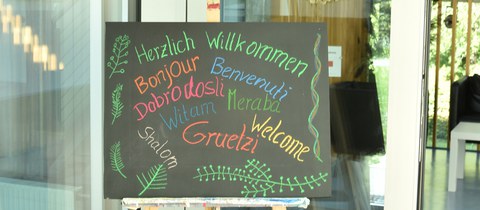 Herzlich Willkommen
Bonjour Benvenuti
Dobrodosli
Witam Meraba
Shalom Gruetzi Welcome